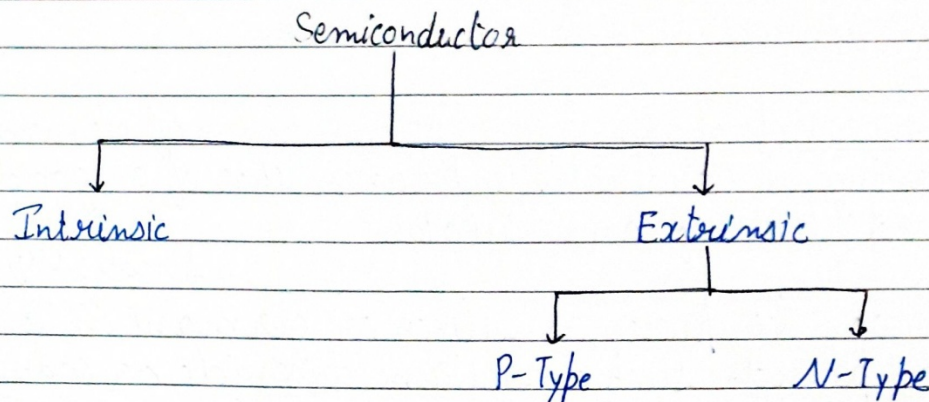 Semiconductor
Intrinsic Extrinsic
P-Type N-Type